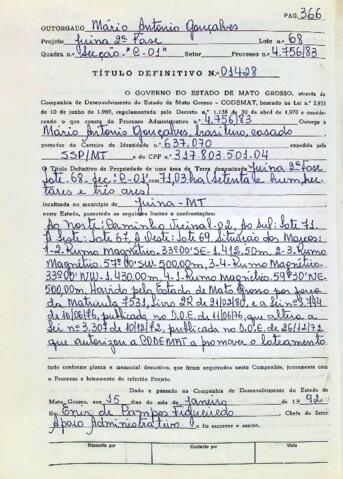 PAG. 366
OUTORGADO Mário Antônio Gonçalves
Projeto Juina 2ª Fase Lote n.º 68
Quadra n.º Secção-"C-01" Setor Processo n.º 4.756/83
TÍTULO DEFINITIVO N.º 01428
O GOVERNO DO ESTADO DE MATO GROSSO, através da
Companhia de Desenvolvimento do Estado de Mato Grosso - CODEMAT, baseado na Lei n.º 2.933
de 10 de junho de 1969, regulamentada pelo Decreto n.º 1.138 de 30 de abril de 1970 e considerando
o que consta do Processo Administrativo n.º 4.756/83 Outorga a
Mário Antônio Gonçalves, brasileiro, casado
portador da Carteira de Identidade n.º 637.070
SSP/MT e do CPF n.º 317.803.501-04
O Título Definitivo de Propriedade de uma área de Terra denominada Juina 2ª Fase
Lote-68-Sec:"C-01" com 71,03 ha (Setenta e hum, hec
tares e três ares)
localizada no município de Juina-MT
neste Estado, possuindo os seguintes limites e confrontações:
Ao Norte: Caminho Vicinal-02, Ao Sul: Lote 71.
A Leste: Lote 67, A Oeste: Lote 69. Situação dos Marcos:
1-2-Rumo Magnético-33º00'SE-1.412,50m, 2-3-Rumo
Magnético-57º00'SW-500,00m, 3-4-Rumo Magnético-
33º00'NW-1.430,00m, 4-1-Rumo Magnético-59º30'NE-
500,00m. Havido pelo Estado de Mato Grosso por força
da Matrícula 7531, Livro 2R de e a Lei nº 3.744
de 10/06/76, publicada no D.O.E. de 11/06/76, que altera a
Lei nº 3.307 de 10/12/72, publicada no D.O.E. de 26/12/72
que autorizou a CODEMAT a promover o loteamento
tudo conforme planta e memorial descritivo, que ficam arquivados nesta Companhia, juntamente com
o Processo e loteamento do referido Projeto.
Dado e passado na Companhia de Desenvolvimento do Estado de
Mato Grosso, aos 15 dias do mês de Janeiro de 1992
Eu Enir de Campos Figueiredo, Chefe do Setor
Apoio Administrativo o fiz escrever e assino.
Transcrito por
Conferido por
Visto